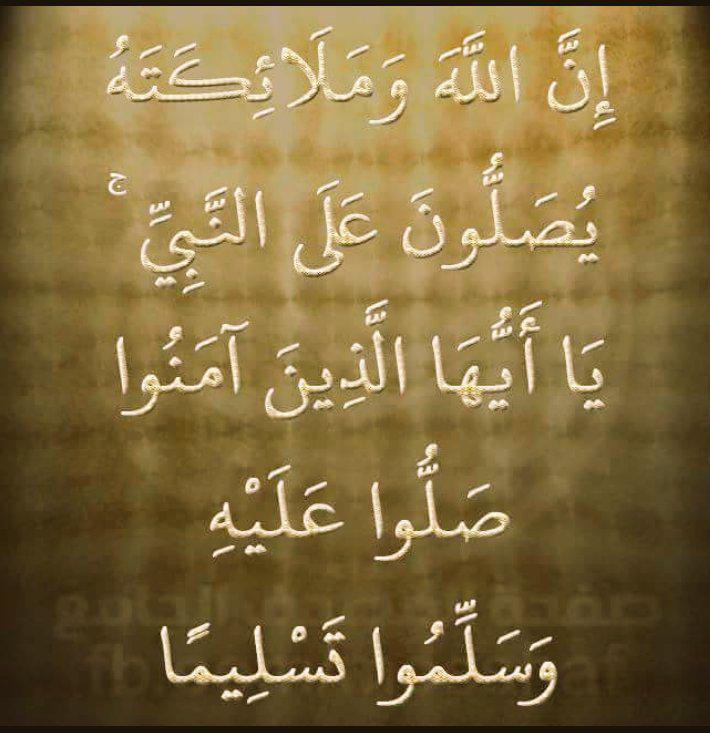 إِنَّ اللَّهَ وَمَلَائِكَتَهُ
يُصَلُّونَ عَلَى النَّبِيِّ ۚ
يَا أَيُّهَا الَّذِينَ آمَنُوا
صَلُّوا عَلَيْهِ
صفحة
وَسَلِّمُوا تَسْلِيمًا